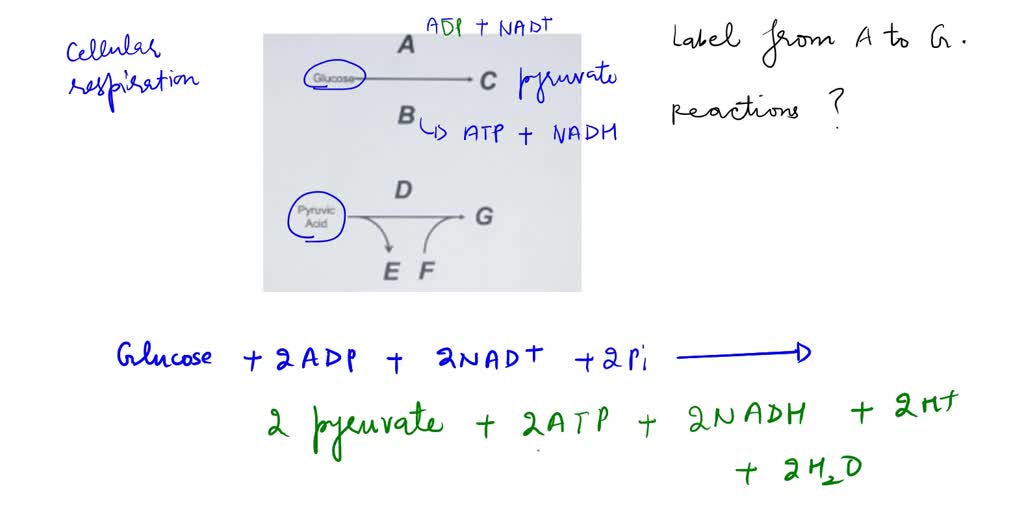 Cellular respiration
ADP + NAD+
A
Glucose
C pyruvate
B
ATP + NADH
Label from A to G.
reactions ?
D
Pyruvic
Acid
G
E F
Glucose + 2ADP + 2NAD+ + 2Pi
2 pyruvate + 2ATP + 2NADH + 2H+
+ 2H2O